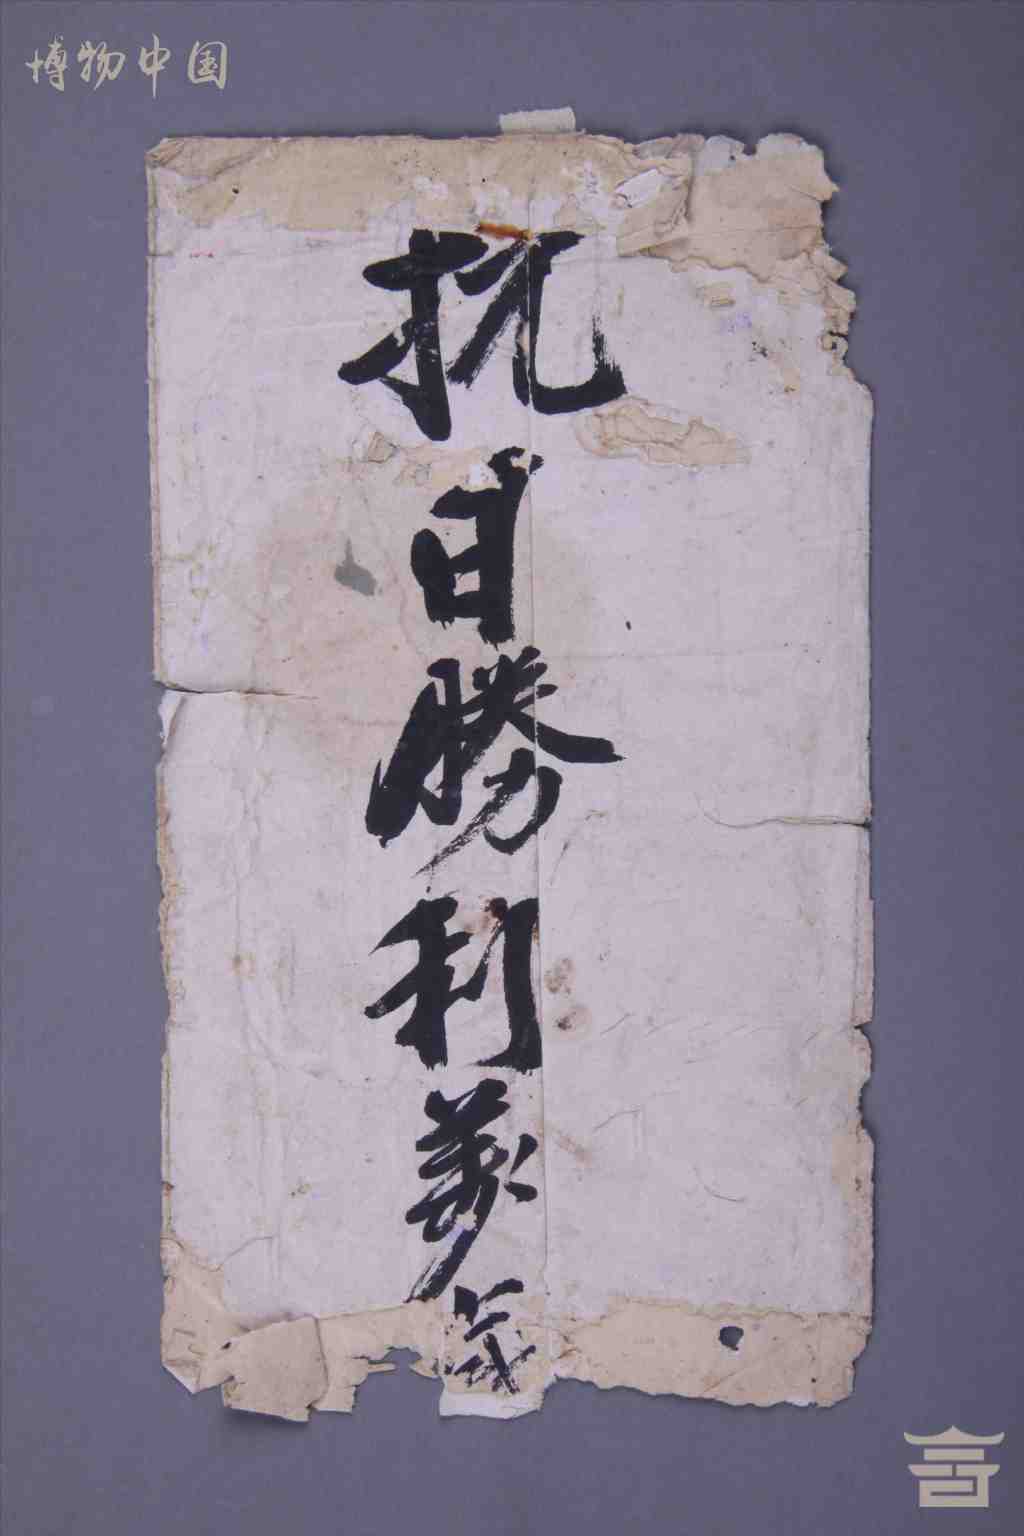 博物中国
抗日勝利萬歲